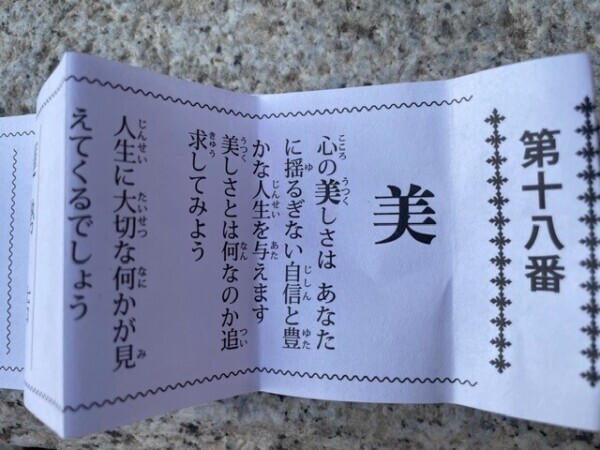 第十八番
美
心の美しさは あなた
に揺るぎない自信と豊
かな人生を与えます
美しさとは何なのか追
求してみよう
人生に大切な何かが見
えてくるでしょう